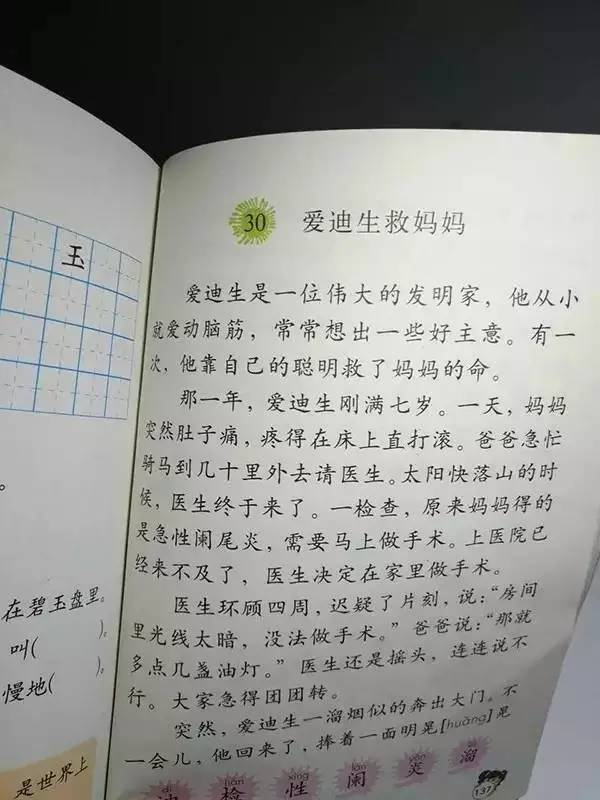 玉
在碧玉盘里。
叫( )。
慢地( )。
是世界上
30 爱迪生救妈妈
爱迪生是一位伟大的发明家，他从小
就爱动脑筋，常常想出一些好主意。有一
次，他靠自己的聪明救了妈妈的命。
那一年，爱迪生刚满七岁。一天，妈妈
突然肚子痛，疼得在床上直打滚。爸爸急忙
骑马到几十里外去请医生。太阳快落山的时
候，医生终于来了。一检查，原来妈妈得的
是急性阑尾炎，需要马上做手术。上医院已
经来不及了，医生决定在家里做手术。
医生环顾四周，迟疑了片刻，说：“房间
里光线太暗，没法做手术。”爸爸说：“那就
多点几盏油灯。”医生还是摇头，连连说不
行。大家急得团团转。
突然，爱迪生一溜烟似的奔出大门。不
一会儿，他回来了，捧着一面明晃[huǎng]晃
dí jiǎn xìng lán yán liū
迪 检 性 阑 炎 溜
137